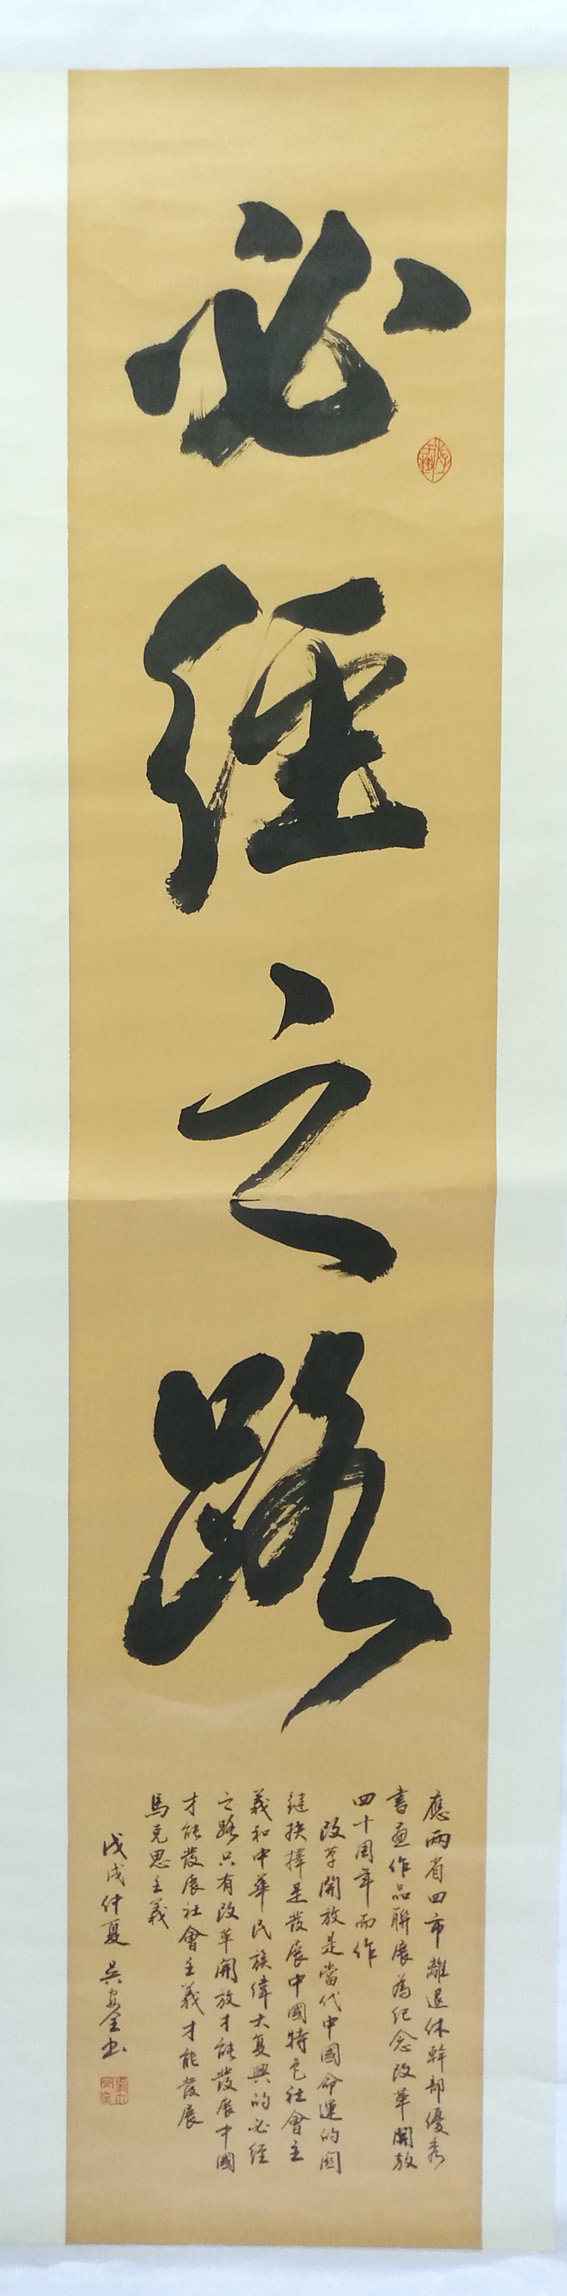 必經之路
應兩省四市離退休幹部優秀
書画作品聯展為纪念改革開放
四十周年而作
改革開放是當代中國命運的関
鍵抉擇是發展中國特色社會主
義和中華民族偉大复興的必經
之路只有改革開放才能發展中國
才能發展社會主義才能發展
馬克思主義
戊戌仲夏 吴安全书